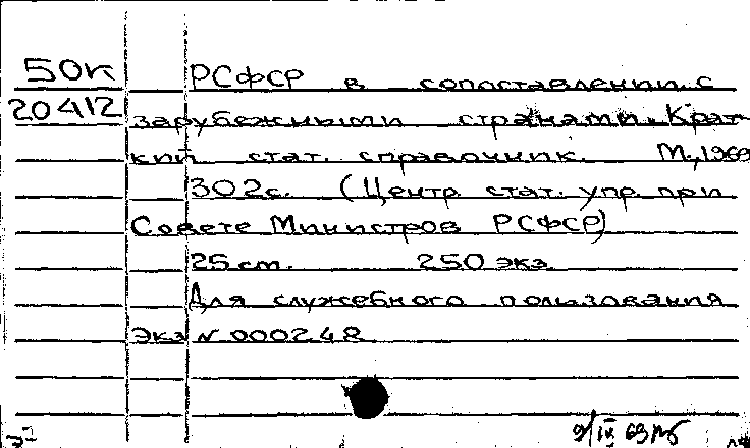 50к РСФСР в сопоставлении с
20412 зарубежными странами. Крат-
кий стат. справочник. М., 1969
302с. (Центр. стат. упр. при
Совете Министров РСФСР)
25 см. 250 экз.
Для служебного пользования
Экз N 000248
9/IX 69